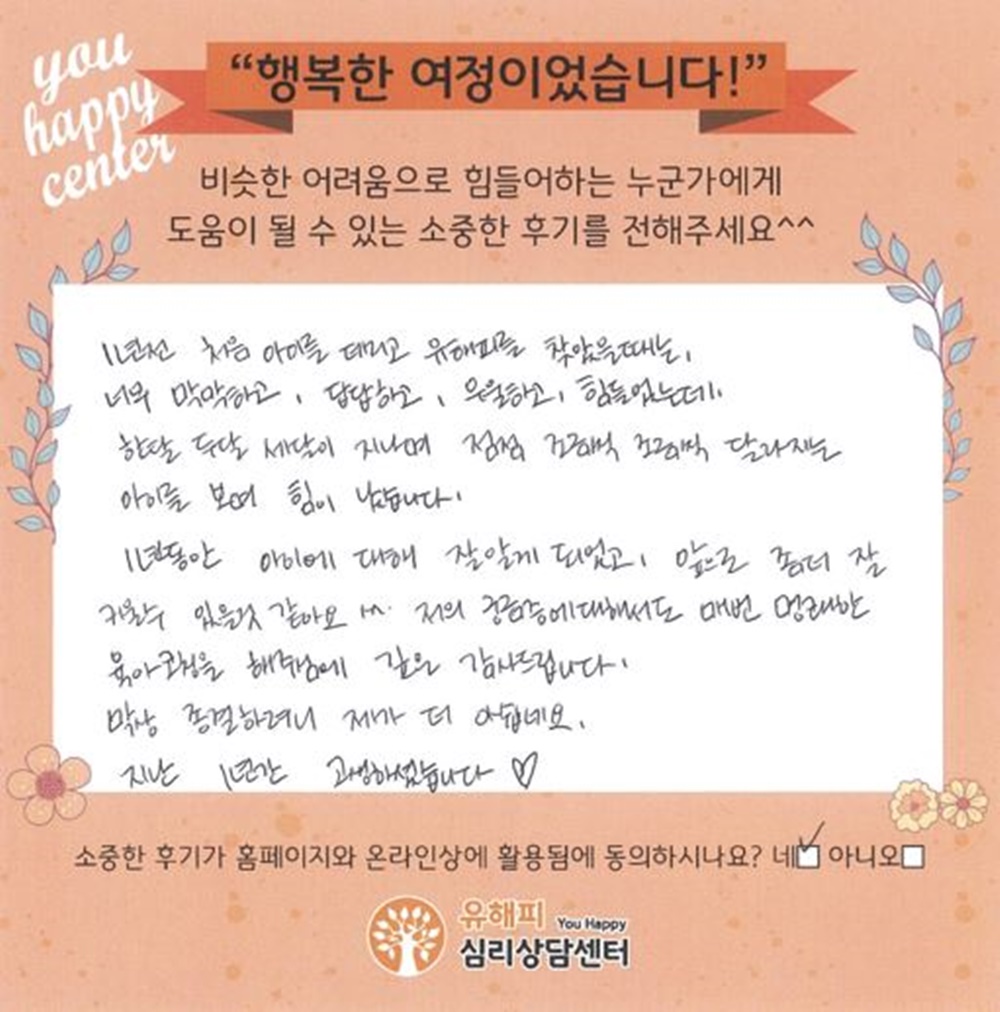 you
happy
center
“행복한 여정이었습니다!”
비슷한 어려움으로 힘들어하는 누군가에게
도움이 될 수 있는 소중한 후기를 전해주세요^^
1년전 처음 아이를 데리고 유해피를 찾았을때는,
너무 막막하고, 답답하고, 우울하고, 힘들었는데,
한달 두달 세달이 지나며 점점 조금씩 조금씩 달라지는
아이를 보며 힘이 났습니다.
1년동안 아이에 대해 잘 알게 되었고, 앞으로 좀더 잘
키울수 있을것 같아요 ^^. 저의 궁금증에대해서도 매번 명쾌한
육아코칭을 해주심에 깊은 감사드립니다.
막상 종결하려니 제가 더 아쉽네요.
지난 1년간 고생하셨습니다 ♡
소중한 후기가 홈페이지와 온라인상에 활용됨에 동의하시나요? 네☑ 아니오☐
유해피 You Happy
심리상담센터